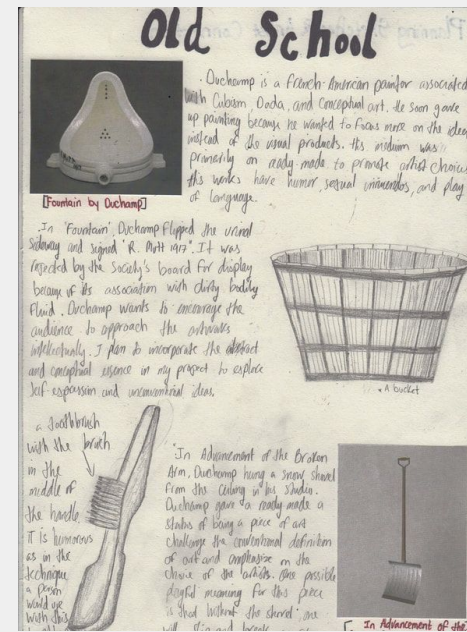 Old School
. Duchamp is a French-American painter associated
with Cubism, Dada, and conceptual art. He soon gave
up painting because he wanted to focus more on the idea
instead of the usual products. His medium was
primarily on ready-made to promote artist choice
His works have humor sexual and play
of language.
[Fountain by Duchamp]
. In 'Fountain', Duchamp flipped the urinal
sideway and signed "R. Mutt 1917". It was
rejected by the Society's board for display
because of its association with dirty bodily
fluid. Duchamp wants to encourage the
audience to approach the artworks
intellectually. I plan to incorporate the abstract
and conceptual essence in my project to explore
self expression and unconventional ideas.
. A bucket
a toothbrush
with the brush
in the
middle of
the handle.
It is humorous
as in the
technique
a person
would use
with this
"In Advancement of the Broken
Arm, Duchamp hung a snow shovel
from the ceiling in his studio.
Duchamp gave a ready made a
status of being a piece of art
challenge the conventional definition
of art and emphasize on the
choice of the artists. One possible
meaning for this piece
is that without the shovel, one
[ In Advancement of the